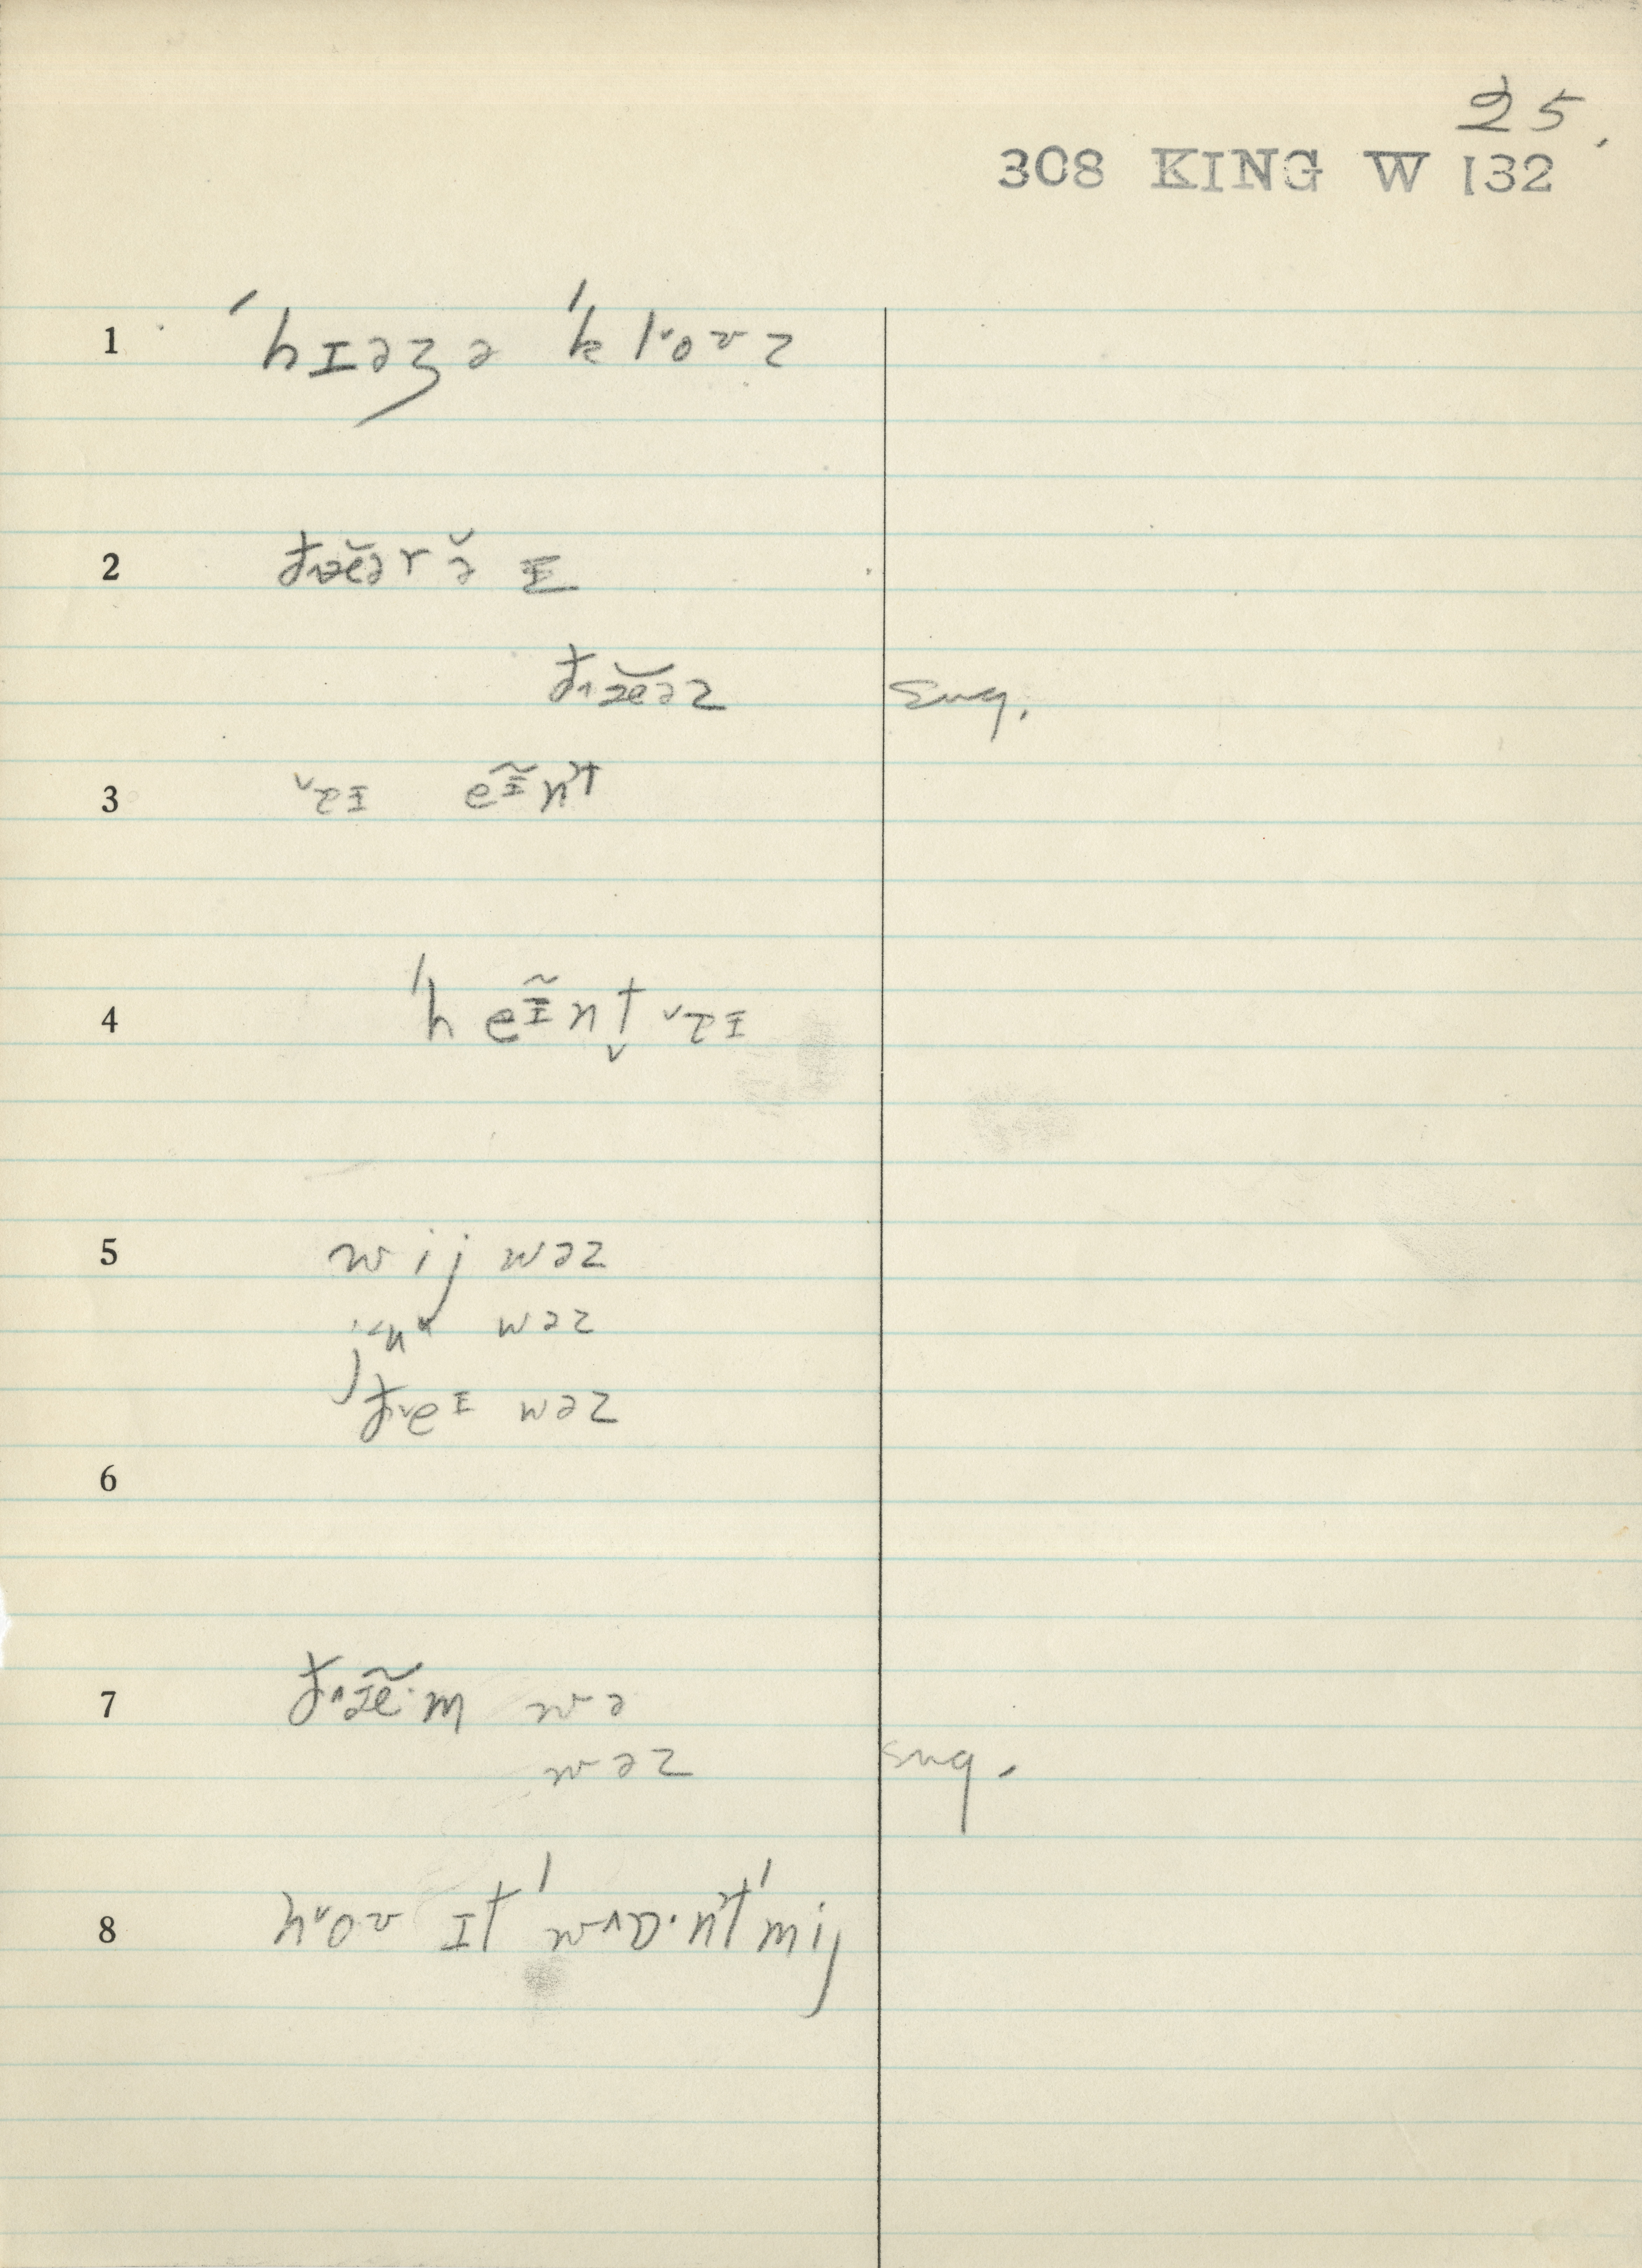 25.
308 KING W 132
1 ˈhɪəʒə ˈklˇoʊz
2 ð˄æ̆ər ə̆ ɪ
ð˄æ̆əz sug.
3 ˇɐɪ eɪ̃nt
4 ˈheɪ̃nt̬ ˇɐɪ
5 wij wəz
wəz
ðˇeɪ wəz
6
7 ð˄æ̃·m wə
wəz sug.
8 hˇoʊ ɪt ˈw˄ɒ·nt ˈmij